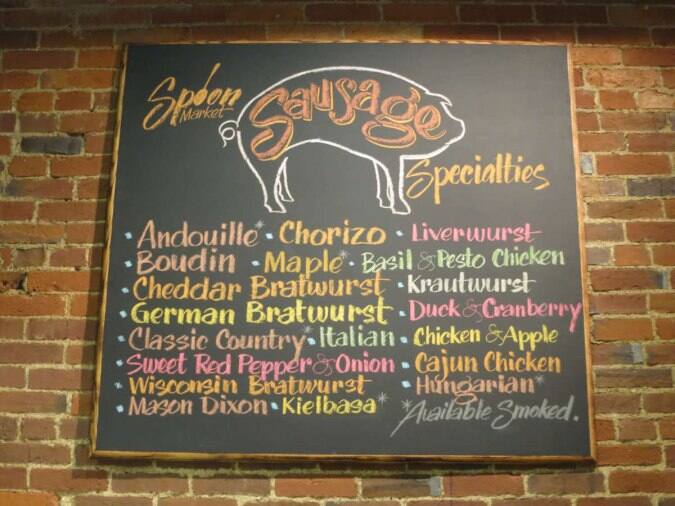 Spoon
Market
Sausage
Specialties
• Andouille* • Chorizo • Liverwurst
• Boudin • Maple* • Basil & Pesto Chicken
• Cheddar Bratwurst • Krautwurst
• German Bratwurst • Duck & Cranberry
• Classic Country* • Italian • Chicken & Apple
• Sweet Red Pepper & Onion • Cajun Chicken
• Wisconsin Bratwurst • Hungarian*
• Mason Dixon • Kielbasa*
*Available Smoked.